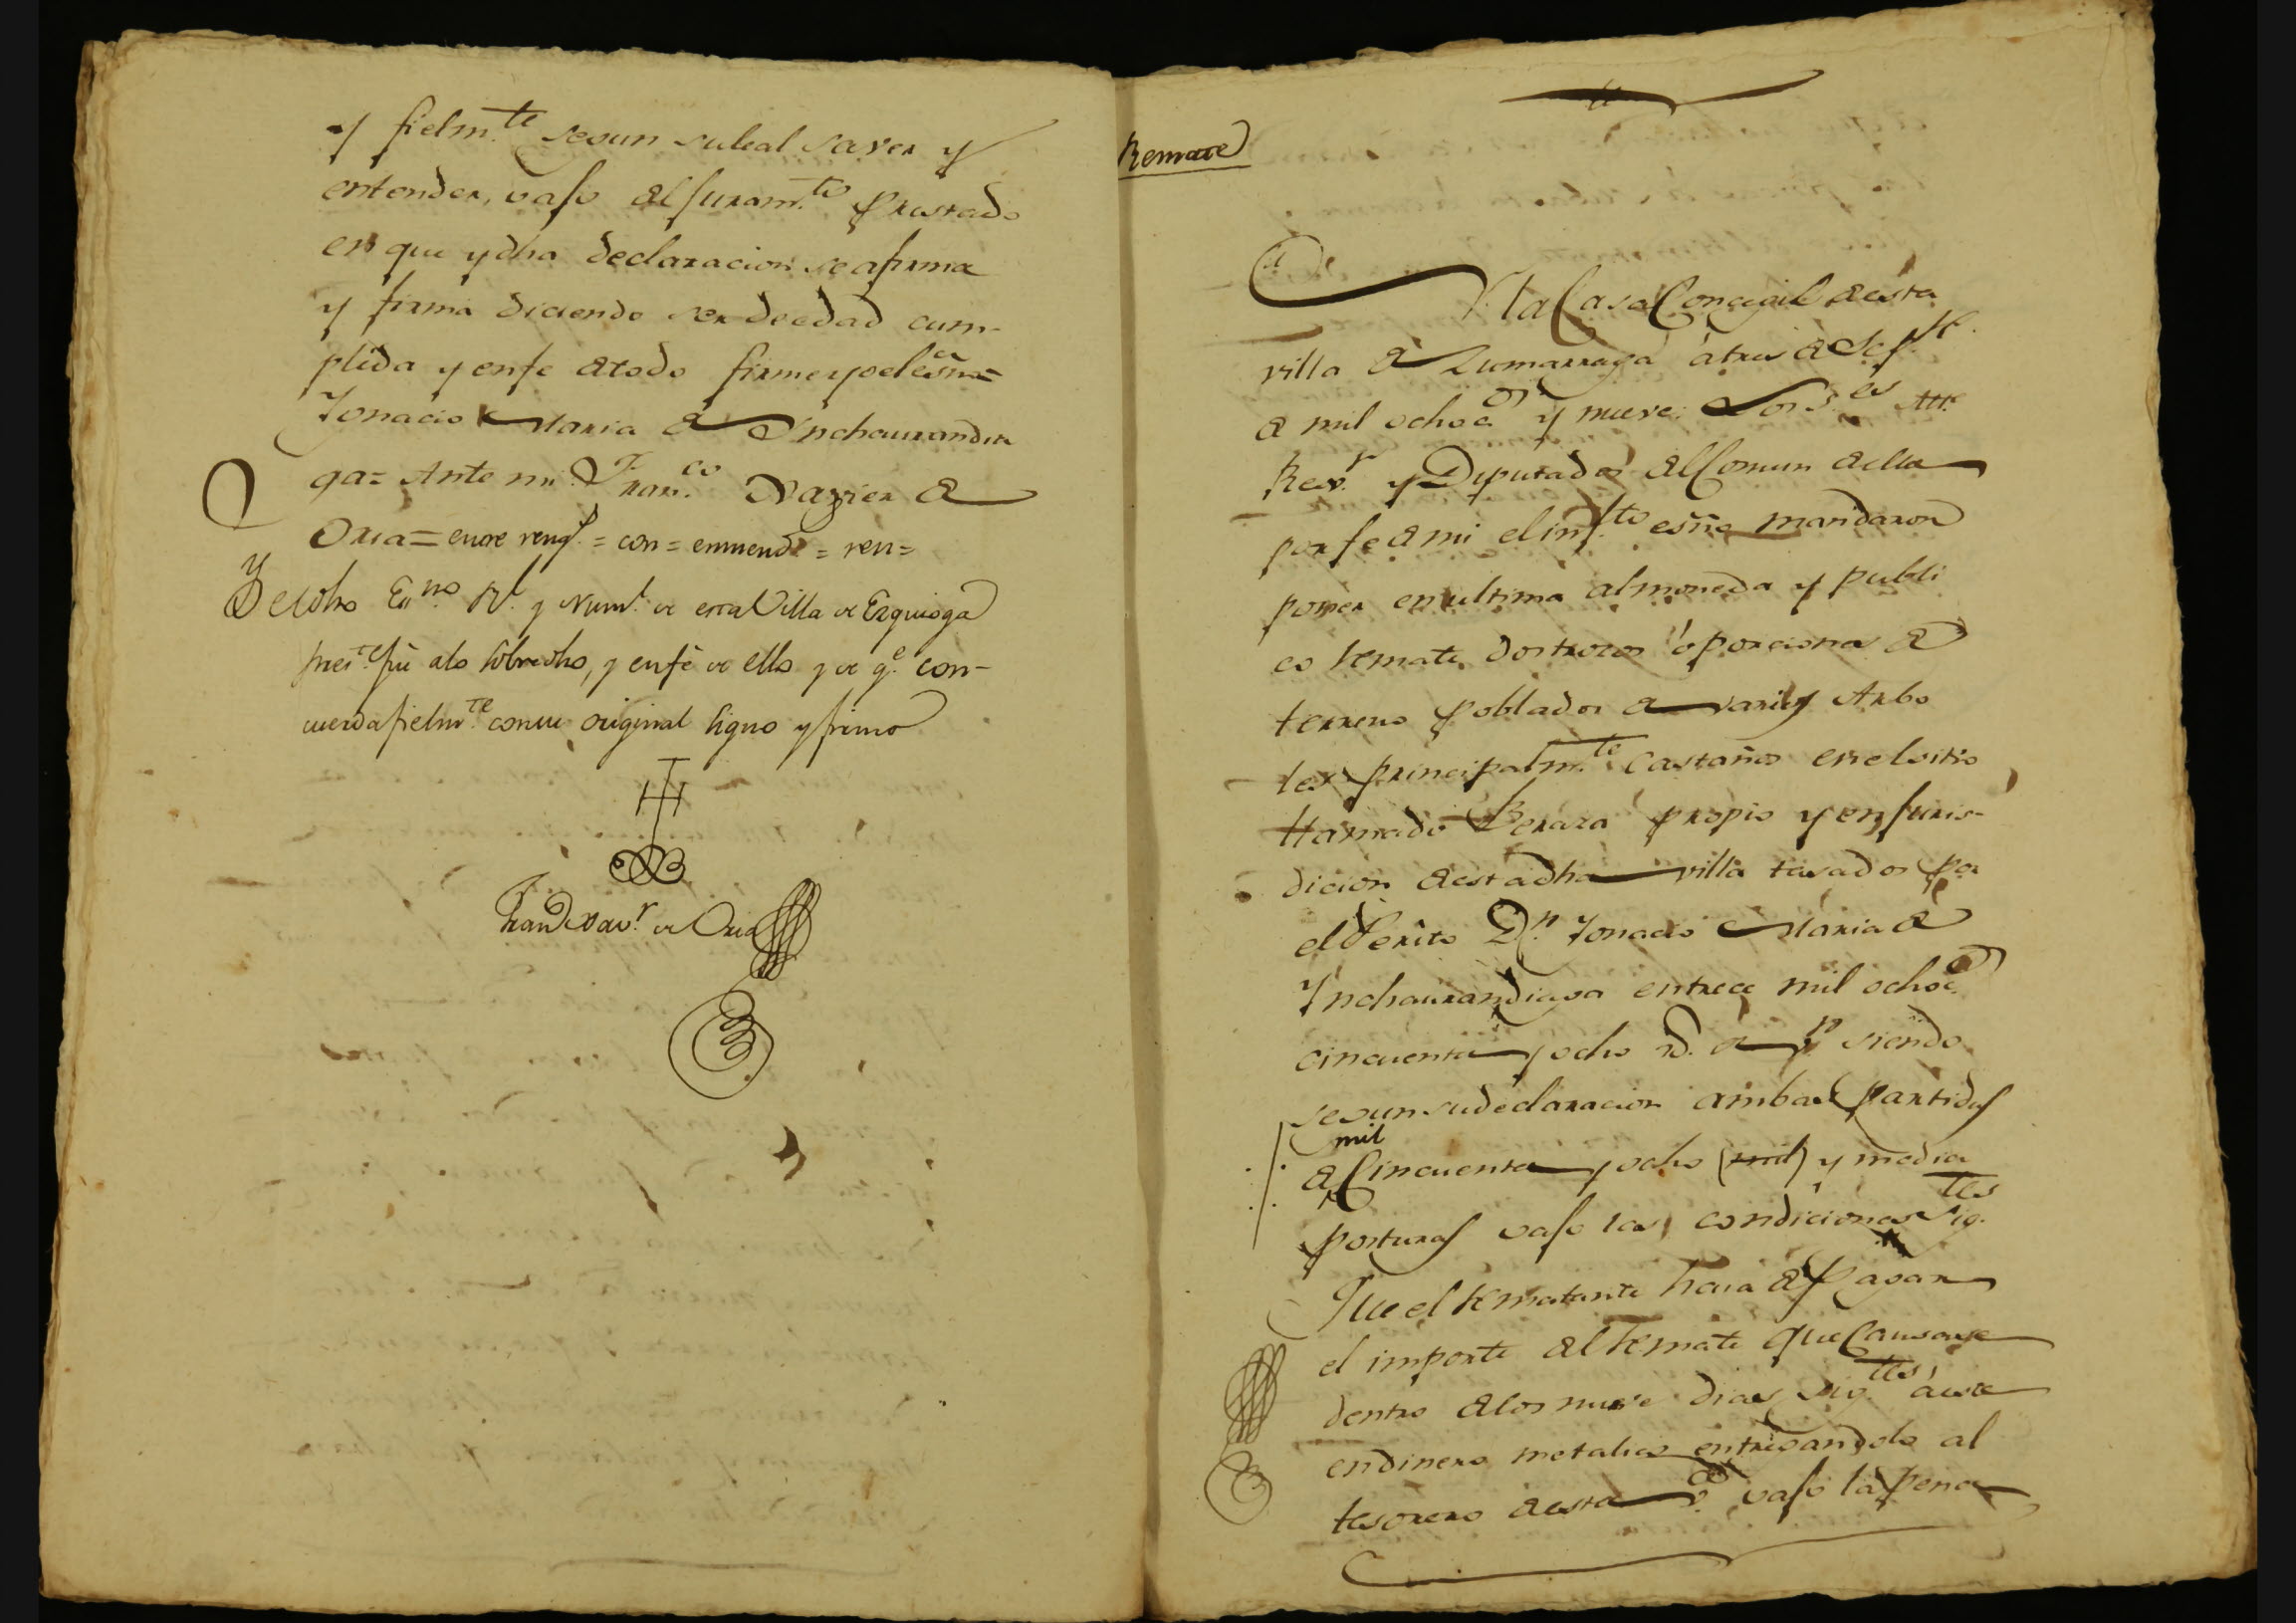 y fielm.te segun su leal saver y
entender, vajo del juram.to prestado
en que y dha declaracion se afirma
y firma diciendo ser de edad cum-
plida y en fe de todo firme yo el esno=
Ignacio Maria de Ynchaurandia
ga= Ante mi: Fran.co Xavier de
Oria= entre reng.s = con = enmend.o = ren=
Yo el dho Es.no R.l y Num.l de esta Villa de Ezquioga
pres.te fui a lo sobredho, y en fé de ello y de q.e con-
cuerda fielm.te con su original signo y firmo
Fran.co Xav.r de Oria
Remate
En la Casa Concegil de esta
villa de Zumarraga á tres de Sep.re
de mil ochoc.os y nueve: Los S.res Al.e
Rex.r y Diputados del Comun de ella
por fe de mi el inf.to esno mandaron
poner en ultima almoneda y publi
co remate dos trozos ó porciones de
terreno poblados de varios Arbo
les principalm.te castaños en el sitio
llamado Beraza propio y en juris-
dicion de esta dha villa tasados por
el Perito D.n Ignacio Maria de
Ynchaurandiaga en trece mil ochoc.os
cincuenta y ocho r.s de v.n siendo
segun su declaracion ambas partidas
mil
de Cincuenta y ocho (mil) y media
posturas vajo las condiciones sig.tes
Que el rematante haia de pagar
el importe del remate que Causase
dentro de los nueve dias sig.tes á este
en dinero metalico entregandolo al
tesorero de esta v.a vajo la pena